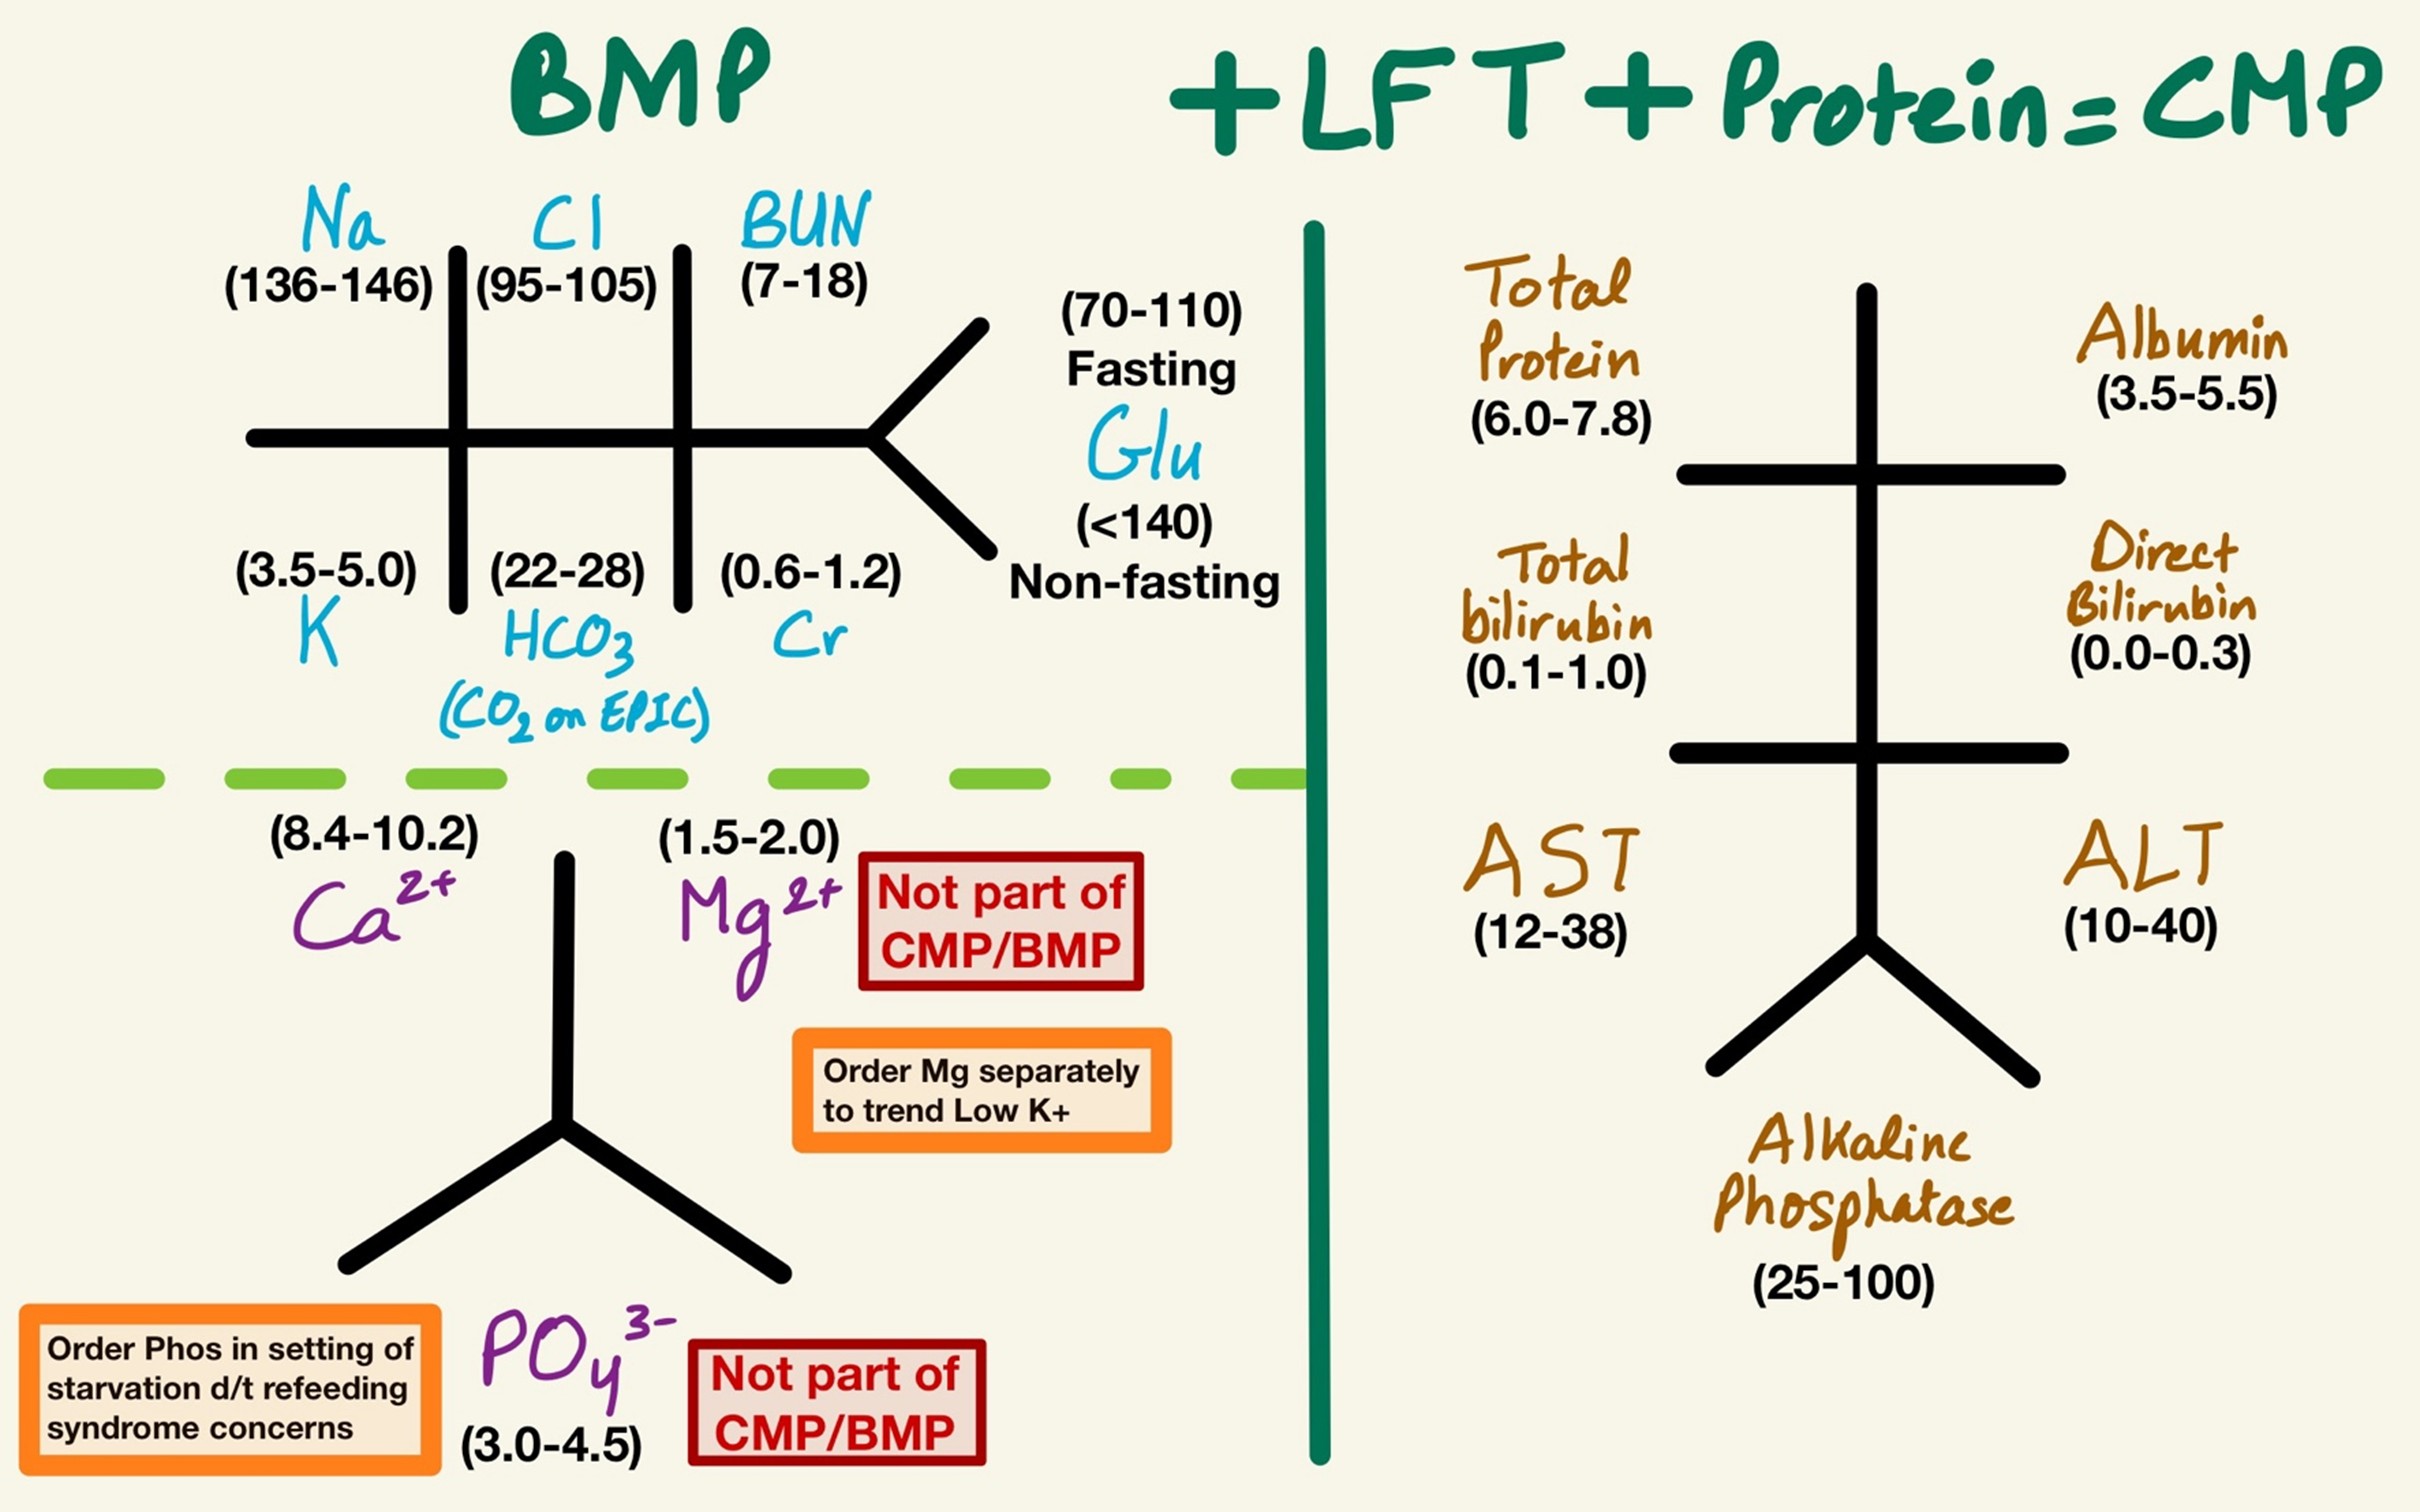 BMP
+ LFT + Protein = CMP
Na
(136-146)
Cl
(95-105)
BUN
(7-18)
(70-110)
Fasting
Glu
(<140)
Non-fasting
(3.5-5.0)
K
(22-28)
HCO3
(CO2 on EPIC)
(0.6-1.2)
Cr
(8.4-10.2)
Ca2+
(1.5-2.0)
Mg2+
Not part of
CMP/BMP
Order Mg separately
to trend Low K+
Order Phos in setting of
starvation d/t refeeding
syndrome concerns
PO4 3-
(3.0-4.5)
Not part of
CMP/BMP
Total
Protein
(6.0-7.8)
Albumin
(3.5-5.5)
Total
bilirubin
(0.1-1.0)
Direct
Bilirubin
(0.0-0.3)
AST
(12-38)
ALT
(10-40)
Alkaline
Phosphatase
(25-100)